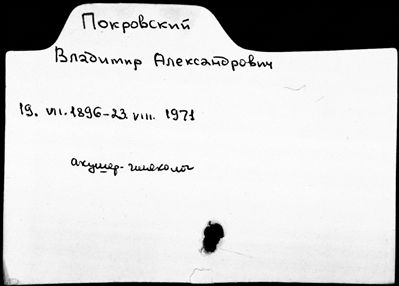 Покровский
Владимир Александрович
19. VII. 1896-23 VIII. 1971
акушер-гинеколог